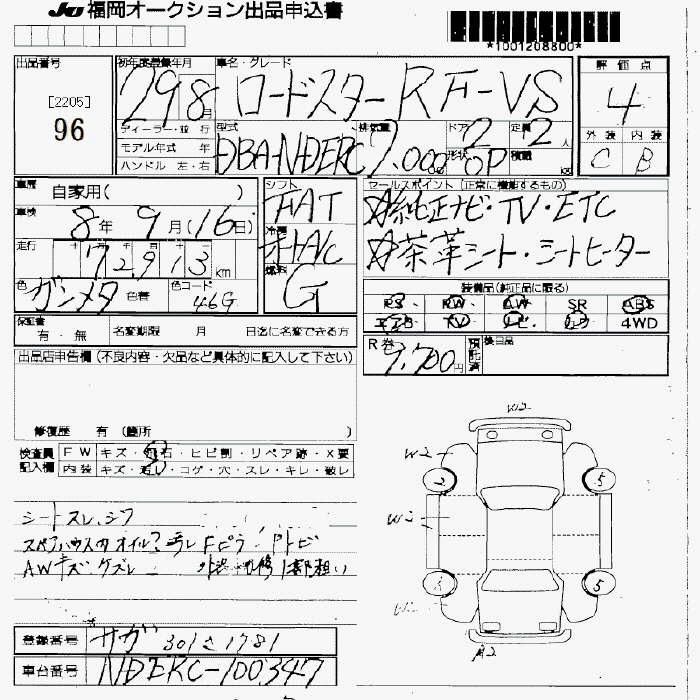 JU 福岡オークション出品申込書
*1001208800*
出品番号 初年度登録年月 車名・グレード 評価点
[2205] 96 29 8月 ロードスターRF-VS 4
ディーラー・並行 型式 排気量 ドア 2 定員 2人 外装 内装
モデル年式 年 DBA-NDERC 2.000 形状 OP 積載 C B
ハンドル 左・右
車歴 自家用( ) シフト FAT セールスポイント(正常に機能するもの)
車検 8年 9月(16日) 冷房 オートA/C ☆純正ナビ・TV・ETC
走行 72,913km ☆茶革シート・シートヒーター
色 ガンメタ 色替 色コード 46G 燃料 G 装備品(純正品に限る)
PS PW AW SR ABS
エアB TV ナビ カワ 4WD
保証書 有・無 名変期限 月 日迄に名変できる方
R券 9,700円 預託済 後日品
出品店申告欄(不良内容・欠品など具体的に記入して下さい)
修復歴 有(箇所 )
検査員記入欄 FW キズ・飛石・ヒビ割・リペア跡・X要
内装 キズ・汚レ・コゲ・穴・スレ・キレ・破レ
シートスレ、シワ
AWキズ・ケズレ
W2
W2
2 5
W2
3 5
A2
登録番号 サガ 301さ1781
車台番号 NDERC-100347